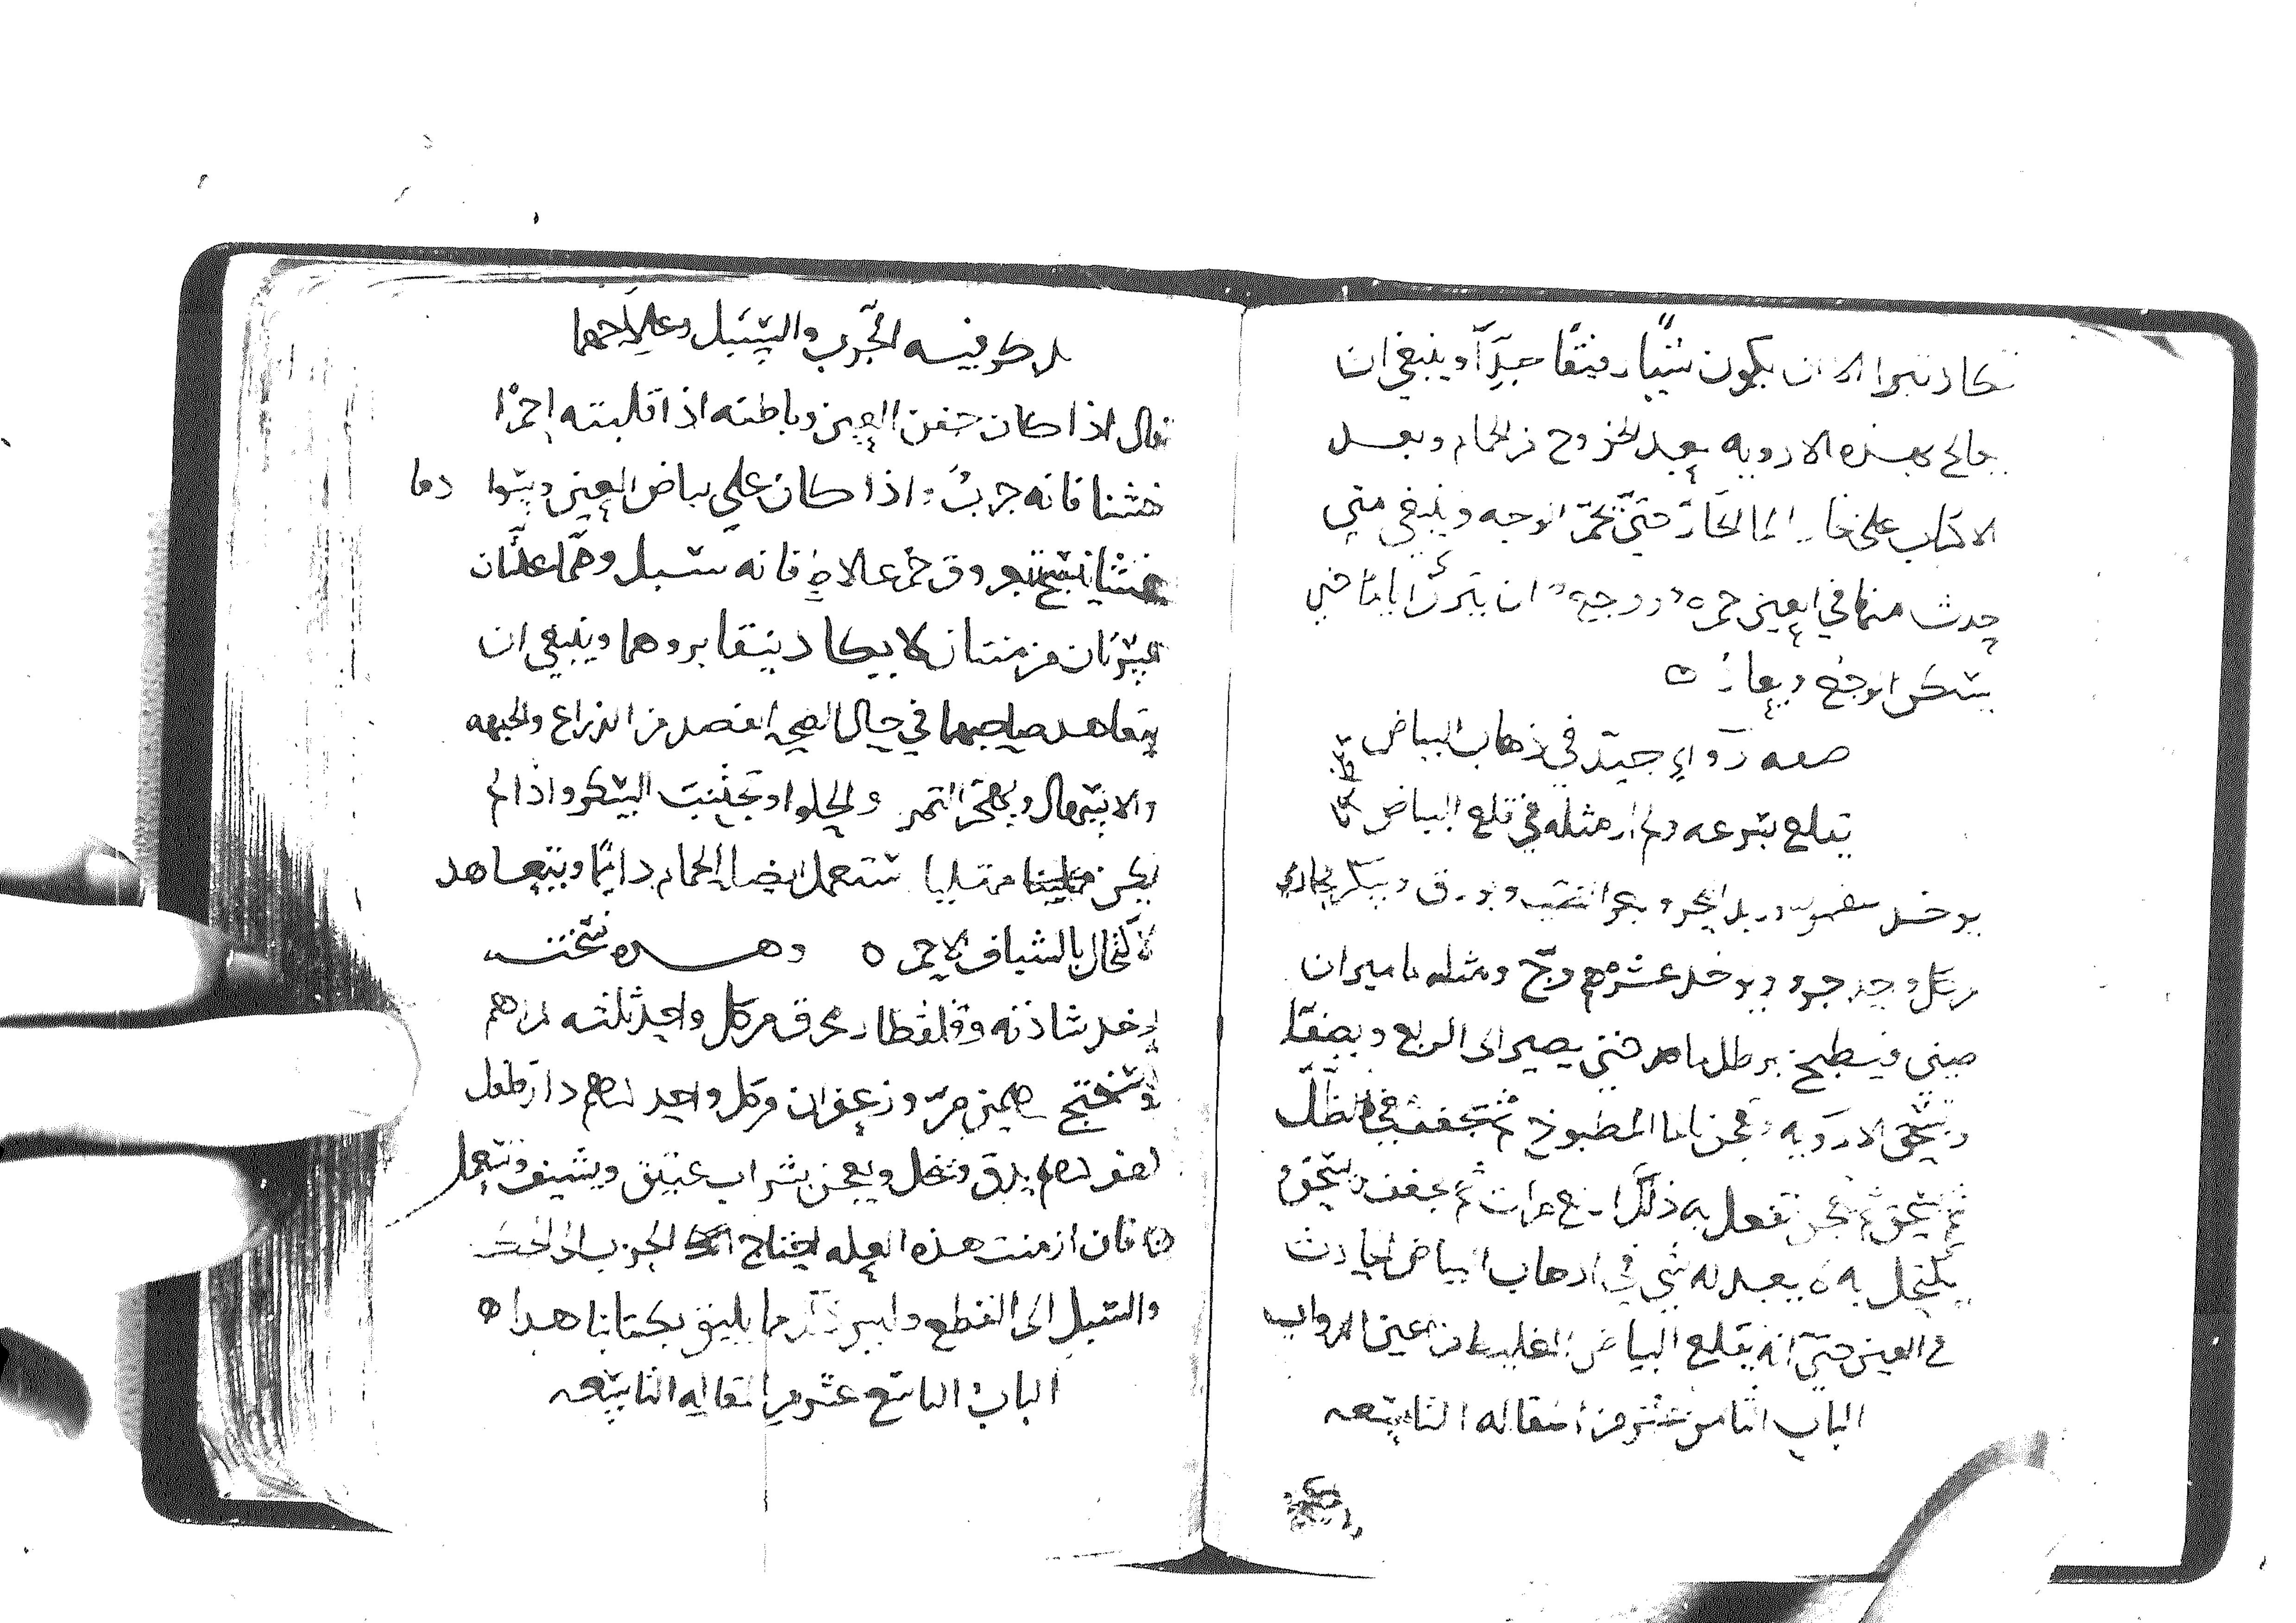 تكاد تبرا الا ان يكون شيا رقيقا جيدا وينبغي ان
يعالج بهذه الادويه بعد الخروج من الحمام وبعد
الانكباب على بخار الما الحار حتى يحمر الوجه وينبغي متى
حدث منها في العين حمره ووجع ان يترك اياما حتى
يسكن الوجع ويعاد ه
صفه دواء جيد في ذهاب البياض
يقلع بسرعه ولم ار مثله في قلع البياض
يوخذ زبد البحر وبعر الضب وبورق وسكر
من كل واحد جزو ويوخذ عشره دراهم وج ومثله ماميران
صيني فيطبخ برطل ما حتى يصير الى الربع ويصفا
ويسحق الادويه وتعجن بالما المطبوخ ثم تجفف في الظل
ثم تسحق ثم تعجن تفعل به ذلك اربع مرات ثم يجفف ويسحق و
يكتحل به لا يعدله شي في اذهاب البياض الحادث
في العين حتى انه يقلع البياض الغليظ من اعين الدواب
الباب الثامن عشر من المقاله التاسعه
يذكر فيه الجرب والسبل وعلاجهما
قال اذا كان جفن العين وباطنه اذا قلبته احمرا
خشنا فانه جرب واذا كان على بياض العين وسوادها
غشيا تنتسج بعروق حمر غلاظ فانه سبل وهما علتان
عسرتان مزمنتان لا يكاد ينقا بروهما وينبغي ان
يتعاهد صاحبهما في حال الصحه الفصد من الذراع والجبهه
والاسهال ويهجر التمر والحلوا وتجنب السكر واذا لم
يكن ممتليا تستعمل ايضا الحمام دايما ويتعاهد
الاكتحال بالشياف الاحمر ه وهذه نسخته
يوخذ شاذنه وقلقطار محرق من كل واحد ثلثه دراهم
درهمين مر وزعفران من كل واحد درهم دارفلفل
نصف درهم يدق وينخل ويعجن بشراب عتيق ويشيف ويستعمل
فان ازمنت هذه العله احتاج الجرب الى الحك
والسبل الى القطع وليس ذكرهما يليق بكتابنا هذا ه
الباب التاسع عشر من المقاله التاسعه